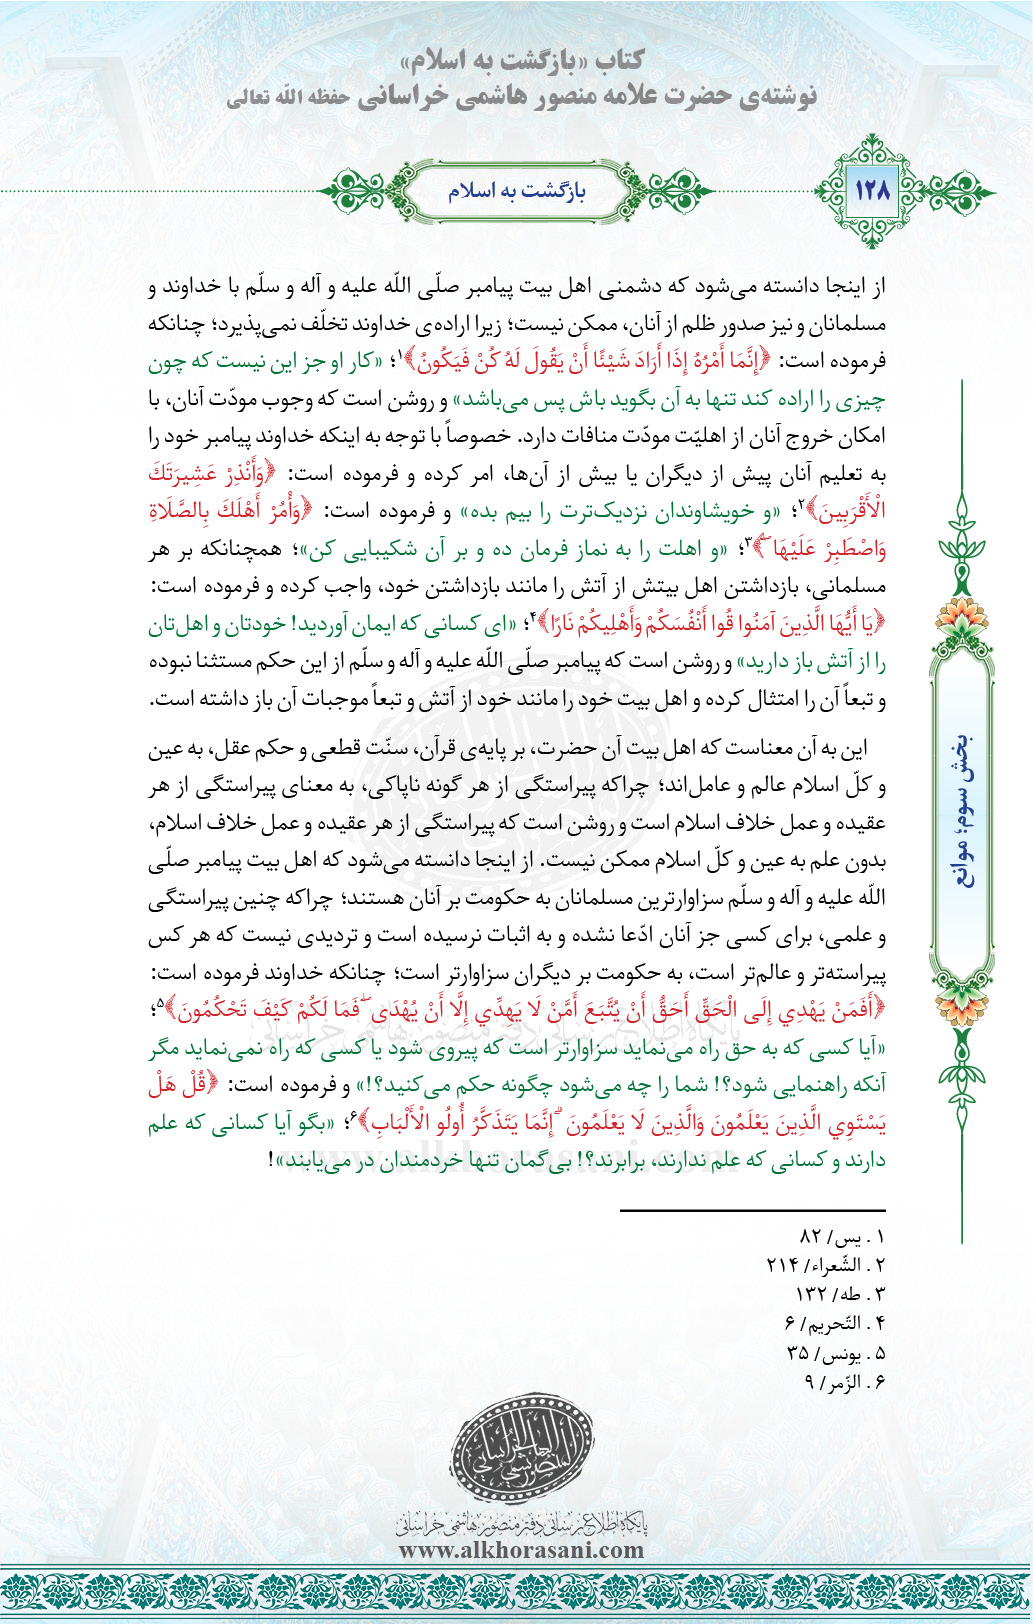 کتاب «بازگشت به اسلام»
نوشته‌ی حضرت علامه منصور هاشمی خراسانی حفظه الله تعالی
۱۲۸
بازگشت به اسلام
از اینجا دانسته می‌شود که دشمنی اهل بیت پیامبر صلّی الله علیه و آله و سلّم با خداوند و
مسلمانان و نیز صدور ظلم از آنان، ممکن نیست؛ زیرا اراده‌ی خداوند تخلّف نمی‌پذیرد؛ چنانکه
فرموده است: ﴿إِنَّمَا أَمْرُهُ إِذَا أَرَادَ شَيْئًا أَنْ يَقُولَ لَهُ كُنْ فَيَكُونُ﴾۱؛ «کار او جز این نیست که چون
چیزی را اراده کند تنها به آن بگوید باش پس می‌باشد» و روشن است که وجوب مودّت آنان، با
امکان خروج آنان از اهلیّت مودّت منافات دارد. خصوصاً با توجه به اینکه خداوند پیامبر خود را
به تعلیم آنان پیش از دیگران یا بیش از آن‌ها، امر کرده و فرموده است: ﴿وَأَنْذِرْ عَشِيرَتَكَ
الْأَقْرَبِينَ﴾۲؛ «و خویشاوندان نزدیک‌ترت را بیم بده» و فرموده است: ﴿وَأْمُرْ أَهْلَكَ بِالصَّلَاةِ
وَاصْطَبِرْ عَلَيْهَا ۖ﴾۳؛ «و اهلت را به نماز فرمان ده و بر آن شکیبایی کن»؛ همچنانکه بر هر
مسلمانی، بازداشتن اهل بیتش از آتش را مانند بازداشتن خود، واجب کرده و فرموده است:
﴿يَا أَيُّهَا الَّذِينَ آمَنُوا قُوا أَنْفُسَكُمْ وَأَهْلِيكُمْ نَارًا﴾۴؛ «ای کسانی که ایمان آوردید! خودتان و اهل‌تان
را از آتش باز دارید» و روشن است که پیامبر صلّی الله علیه و آله و سلّم از این حکم مستثنا نبوده
و تبعاً آن را امتثال کرده و اهل بیت خود را مانند خود از آتش و تبعاً موجبات آن باز داشته است.
این به آن معناست که اهل بیت آن حضرت، بر پایه‌ی قرآن، سنّت قطعی و حکم عقل، به عین
و کلّ اسلام عالم و عامل‌اند؛ چراکه پیراستگی از هر گونه ناپاکی، به معنای پیراستگی از هر
عقیده و عمل خلاف اسلام است و روشن است که پیراستگی از هر عقیده و عمل خلاف اسلام،
بدون علم به عین و کلّ اسلام ممکن نیست. از اینجا دانسته می‌شود که اهل بیت پیامبر صلّی
الله علیه و آله و سلّم سزاوارترین مسلمانان به حکومت بر آنان هستند؛ چراکه چنین پیراستگی
و علمی، برای کسی جز آنان ادّعا نشده و به اثبات نرسیده است و تردیدی نیست که هر کس
پیراسته‌تر و عالم‌تر است، به حکومت بر دیگران سزاوارتر است؛ چنانکه خداوند فرموده است:
﴿أَفَمَنْ يَهْدِي إِلَى الْحَقِّ أَحَقُّ أَنْ يُتَّبَعَ أَمَّنْ لَا يَهِدِّي إِلَّا أَنْ يُهْدَى ۖ فَمَا لَكُمْ كَيْفَ تَحْكُمُونَ﴾۵؛
«آیا کسی که به حق راه می‌نماید سزاوارتر است که پیروی شود یا کسی که راه نمی‌نماید مگر
آنکه راهنمایی شود؟! شما را چه می‌شود چگونه حکم می‌کنید؟!» و فرموده است: ﴿قُلْ هَلْ
يَسْتَوِي الَّذِينَ يَعْلَمُونَ وَالَّذِينَ لَا يَعْلَمُونَ ۗ إِنَّمَا يَتَذَكَّرُ أُولُو الْأَلْبَابِ﴾۶؛ «بگو آیا کسانی که علم
دارند و کسانی که علم ندارند، برابرند؟! بی‌گمان تنها خردمندان در می‌یابند»!
بخش سوم؛ موانع
۱ . یس/ ۸۲
۲ . الشّعراء/ ۲۱۴
۳ . طه/ ۱۳۲
۴ . التّحریم/ ۶
۵ . یونس/ ۳۵
۶ . الزّمر/ ۹
المنصور الهاشمي الخراساني
پایگاه اطلاع‌رسانی دفتر منصور هاشمی خراسانی
www.alkhorasani.com